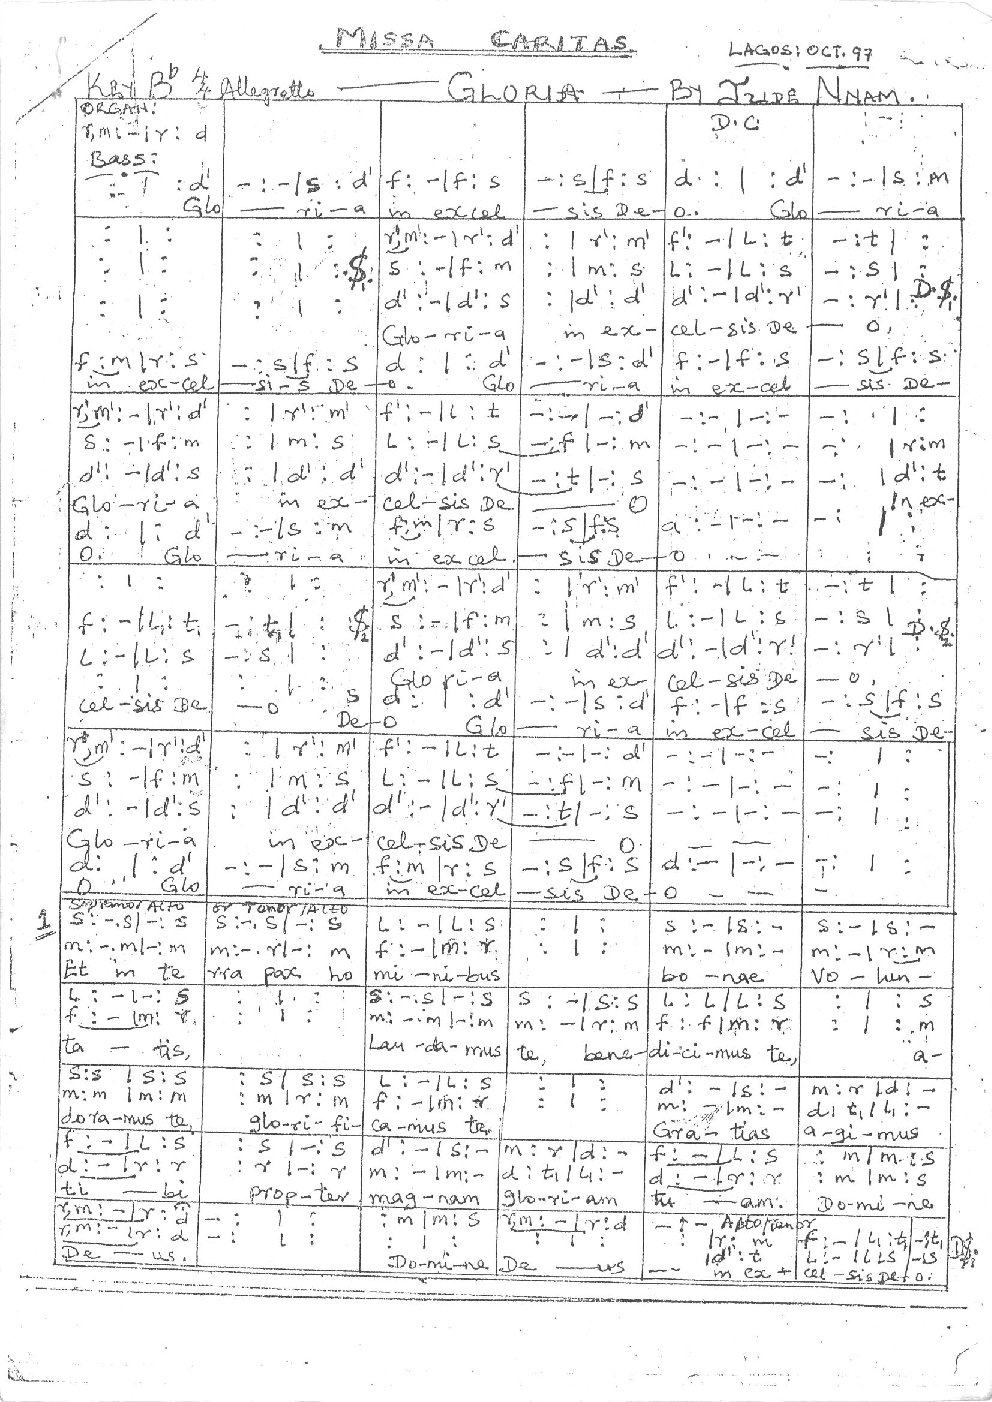 MISSA CARITAS
LAGOS: OCT. 97
KEY Bb 4/4 Allegretto — GLORIA — BY JUDE NNAM.
ORGAN: D.C
r,m:-|r:d
Bass:
:-| :d' -:-|s:d' f:-|f:s -:s|f:s d:|:d' -:-|s:m
Glo — ri-a in excel — sis De-o. Glo — ri-a
:|: :|: r',m':-|r':d' :|r':m' f':-|L:t -:t|:
:|: :|: S s:-|f:m :|m:s L:-|L:s -:s|: D.S
:|: :|: d':-|d':s :|d':d' d':-|d':r' -:r'|:
Glo-ri-a in ex- cel-sis De — o,
f:m|r:s -:s|f:s d:|:d' -:-|s:d' f:-|f:s -:s|f:s
in ex-cel —si-s De-o. Glo — ri-a in ex-cel — sis De-
r',m':-|r':d' :|r':m' f':-|L:t -:-|-:d' -:-|-:- -:|:
s:-|f:m :|m:s L:-|L:s -:f|-:m -:-|-:- -:|r:m
d':-|d':s :|d':d' d':-|d':r' -:t|-:s -:-|-:- -:|d':t
Glo-ri-a in ex- cel-sis De — O In ex-
d:|:d' -:-|s:m f:m|r:s -:s|f:s d:-|-:- -:|
O. Glo — ri-a in excel — sis De-o
:|: :|: r',m':-|r':d' :|r':m' f':-|L:t -:t|:
f:-|L,:t, -:t,|: S2 s:-|f:m :|m:s L:-|L:s -:s|: D.S2
L:-|L:s -:s|: d':-|d':s :|d':d' d':-|d':r' -:r'|:
:|: :|: Glo ri-a in ex- cel-sis De — o,
cel-sis De —o s d:|:d' -:-|s:d f:-|f:s -:s|f:s
De-o Glo — ri-a in ex-cel — sis De-
r',m':-|r':d' :|r':m' f':-|L:t -:-|-:d' -:-|-:- -:|:
s:-|f:m :|m:s L:-|L:s -:f|-:m -:-|-:- -:|:
d':-|d':s :|d':d' d':-|d':r' -:t|-:s -:-|-:- -:|:
Glo-ri-a in ex- cel-sis De — O.
d:|:d' -:-|s:m f:m|r:s -:s|f:s d:-|-:- -:|:
O. Glo — ri-a in ex-cel —sis De-o
Soprano/Alto or Tenor/Alto
1 s:-.s|-:s s:-.s|-:s L:-|L:s :|: s:-|s:- s:-|s:-
m:-.m|-:m m:-.r|-:m f:-|m:r :|: m:-|m:- m:-|r:m
Et in te rra pax ho mi-ni-bus bo-nae Vo-lun-
L:-|-:s :|: s:-.s|-:s s:-|s:s L:L|L:s :|:s
f:-|m:r :|: m:-.m|-:m m:-|r:m f:f|m:r :|:m
ta — tis, Lau-da-mus te, bene-di-ci-mus te, a-
s:s|s:s :s|s:s L:-|L:s :|: d':-|s:- m:r|d:-
m:m|m:m :m|r:m f:-|m:r :|: m:-|m:- d:t,|L,:-
dora-mus te, glo-ri-fi-ca-mus te, Gra-tias a-gi-mus
f:-|L:s :s|-:s d':-|s:- m:r|d:- f:-|L:s :m|m:s
d:-|r:r :r|-:r m:-|m:- d:t,|L,:- d:-|r:r :m|m:s
ti — bi prop-ter mag-nam glo-ri-am tu — am. Do-mi-ne
r,m:-|r:d -:|: :m|m:s r,m:-|r:d -:- Alto/Tenor
r,m:-|r:d -:|: :|: :|: :|r:m f:-|L,:t,|-:t,
De — us. |d':t L:-|L:s|-:s
Do-mi-ne De — us in ex + cel-sis De-o.